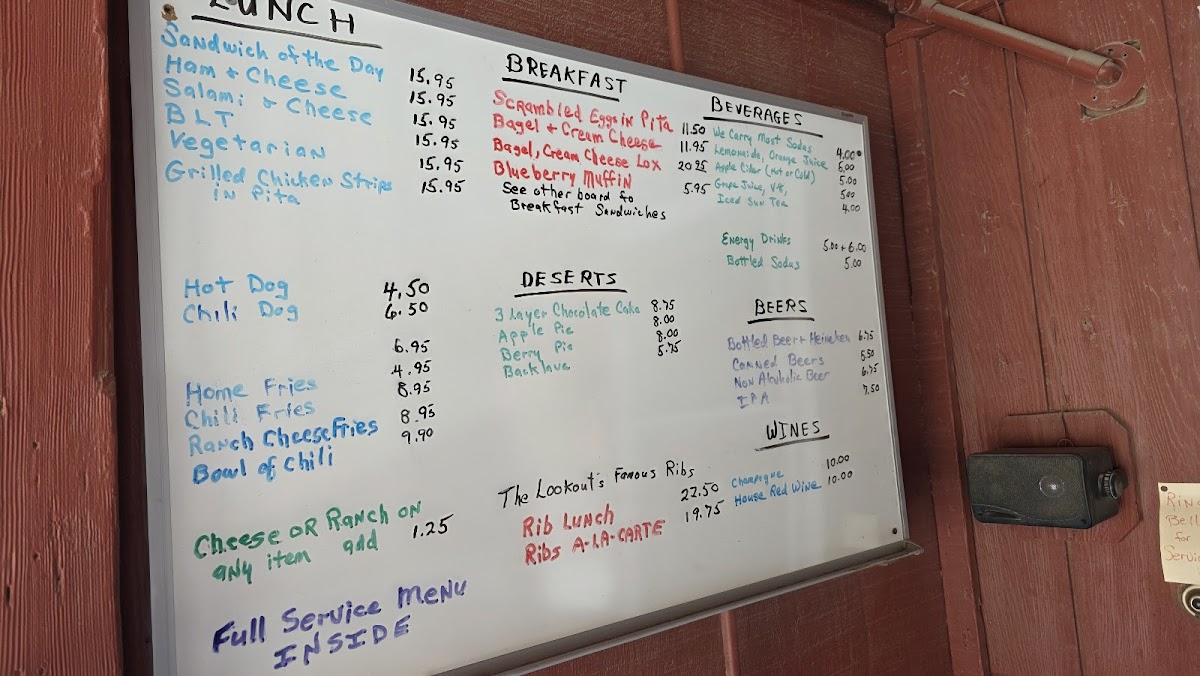 LUNCH
Sandwich of the Day 15.95
Ham + Cheese 15.95
Salami & Cheese 15.95
BLT 15.95
Vegetarian 15.95
Grilled Chicken Strips 15.95
in Pita
Hot Dog 4.50
Chili Dog 6.50
6.95
4.95
Home Fries 8.95
Chili Fries 8.95
Ranch Cheese Fries 9.90
Bowl of Chili
Cheese or Ranch on
any item add 1.25
Full Service Menu
INSIDE
BREAKFAST
Scrambled Eggs in Pita 11.50
Bagel + Cream Cheese 11.95
Bagel, Cream Cheese Lox 20.25
Blueberry Muffin 5.95
See other board fo
Breakfast Sandwiches
DESERTS
3 Layer Chocolate Cake 8.75
Apple Pie 8.00
Berry Pie 8.00
Backlava 5.75
The Lookout's Famous Ribs
Rib Lunch 22.50
Ribs A-LA-CARTE 19.75
BEVERAGES
We Carry Most Sodas 4.00
Lemonaide, Orange Juice 5.00
Apple Cider (Hot or Cold) 5.00
Grape Juice, V8, 5.00
Iced Sun Tea 4.00
Energy Drinks 5.00 + 6.00
Bottled Sodas 5.00
BEERS
Bottled Beer + Heineken 6.75
Canned Beers 5.50
Non Alcoholic Beer 6.75
IPA 7.50
WINES
Champagne 10.00
House Red Wine 10.00
Ring
Bell
for
Service